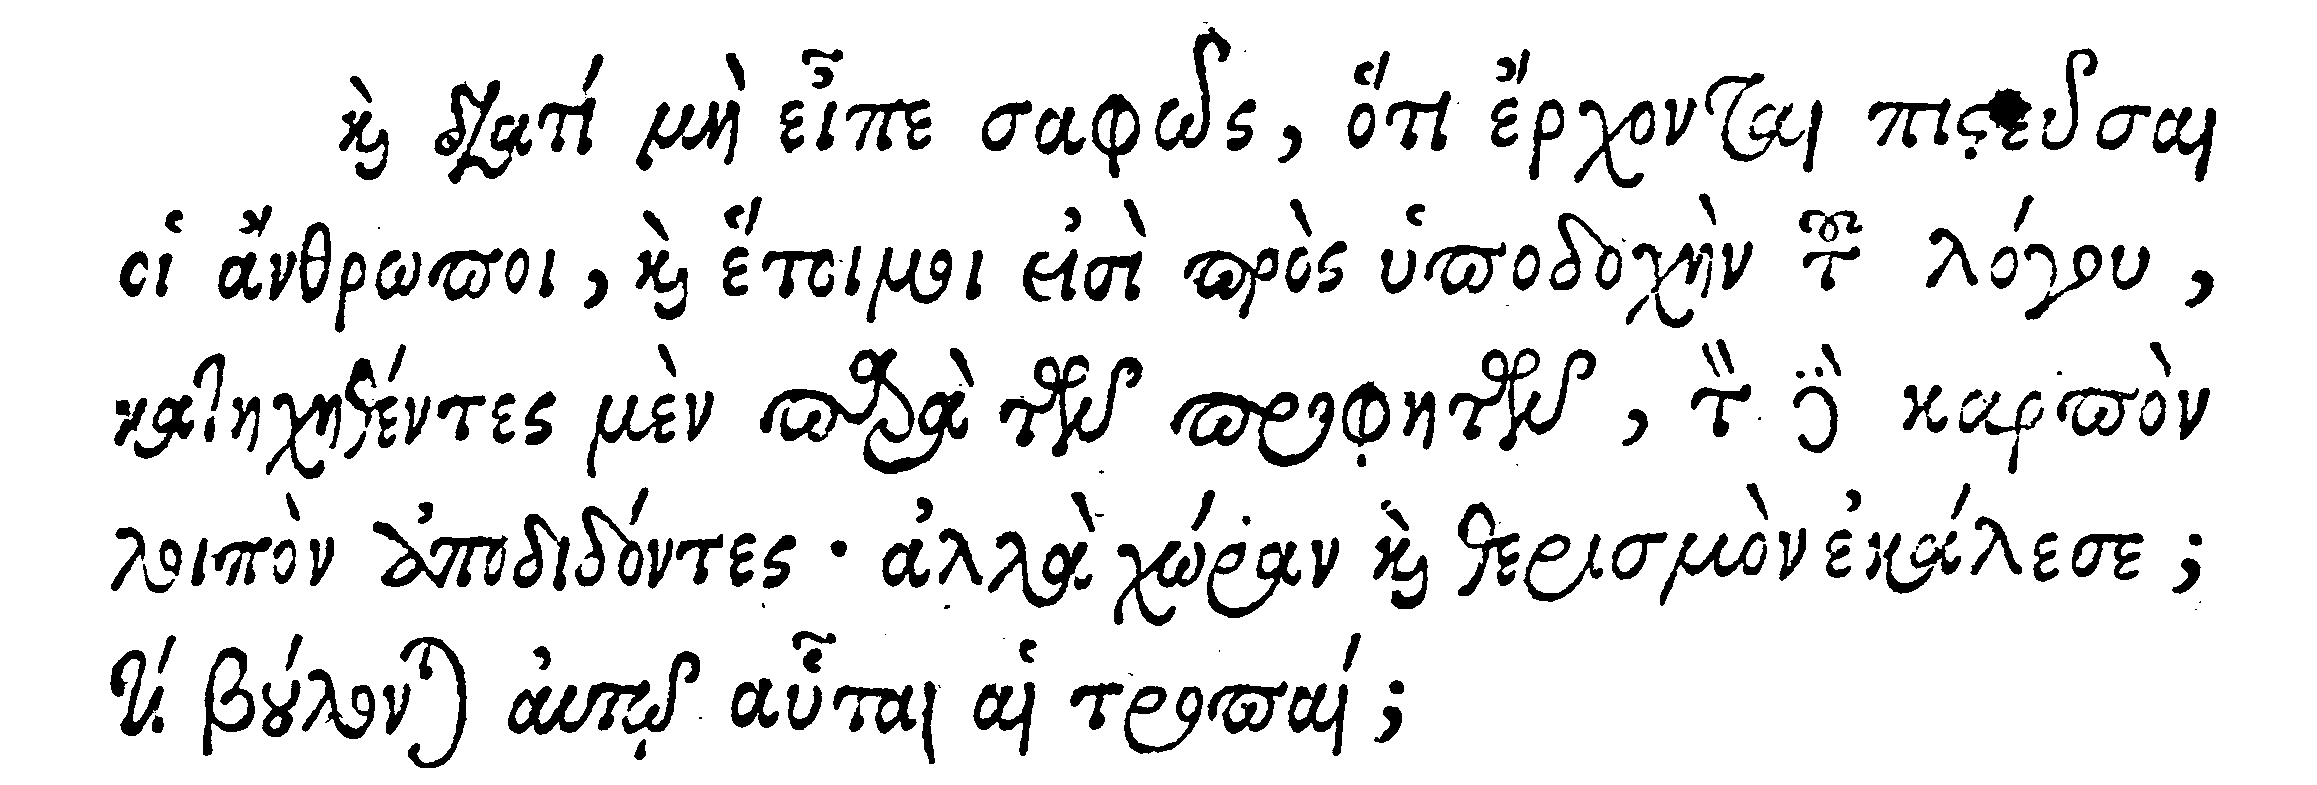 καὶ διατί μὴ εἶπε σαφῶς, ὅτι ἔρχονται πιστεῦσαι
οἱ ἄνθρωποι, καὶ ἕτοιμοι εἰσὶ πρὸς ὑποδοχὴν τοῦ λόγου,
κατηχηθέντες μὲν παρὰ τῶν προφητῶν, τὸν δὲ καρπὸν
λοιπὸν ἀποδιδόντες· ἀλλὰ χώραν καὶ θερισμὸν ἐκάλεσε;
τί βούλονται αὐτῷ αὗται αἱ τροπαί;